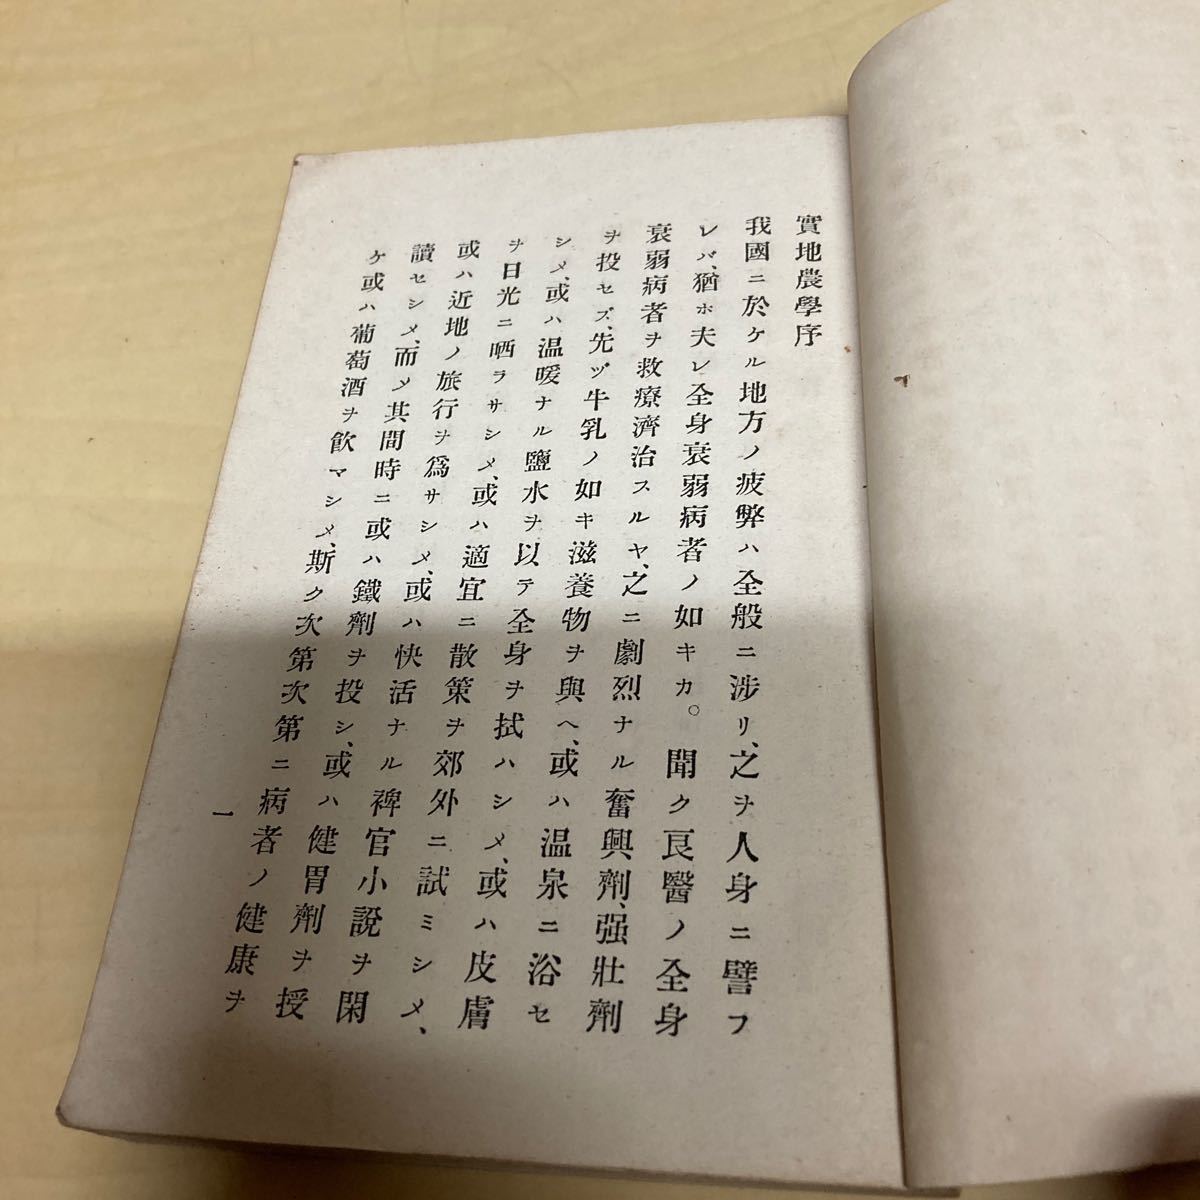 實地農學序
我國ニ於ケル地方ノ疲弊ハ全般ニ涉リ、之ヲ人身ニ譬フ
レバ、猶ホ夫レ全身衰弱病者ノ如キカ。聞ク良醫ノ全身
衰弱病者ヲ救療濟治スルヤ、之ニ劇烈ナル奮興劑、强壯劑
ヲ投セズ、先ヅ牛乳ノ如キ滋養物ヲ與ヘ、或ハ温泉ニ浴セ
シメ、或ハ温暖ナル鹽水ヲ以テ全身ヲ拭ハシメ、或ハ皮膚
ヲ日光ニ晒ラサシメ、或ハ適宜ニ散策ヲ郊外ニ試ミシメ、
或ハ近地ノ旅行ヲ爲サシメ、或ハ快活ナル裨官小說ヲ閑
讀セシメ、而メ其間時ニ或ハ鐵劑ヲ投シ、或ハ健胃劑ヲ授
ケ或ハ葡萄酒ヲ飮マシメ、斯ク次第次第ニ病者ノ健康ヲ
一